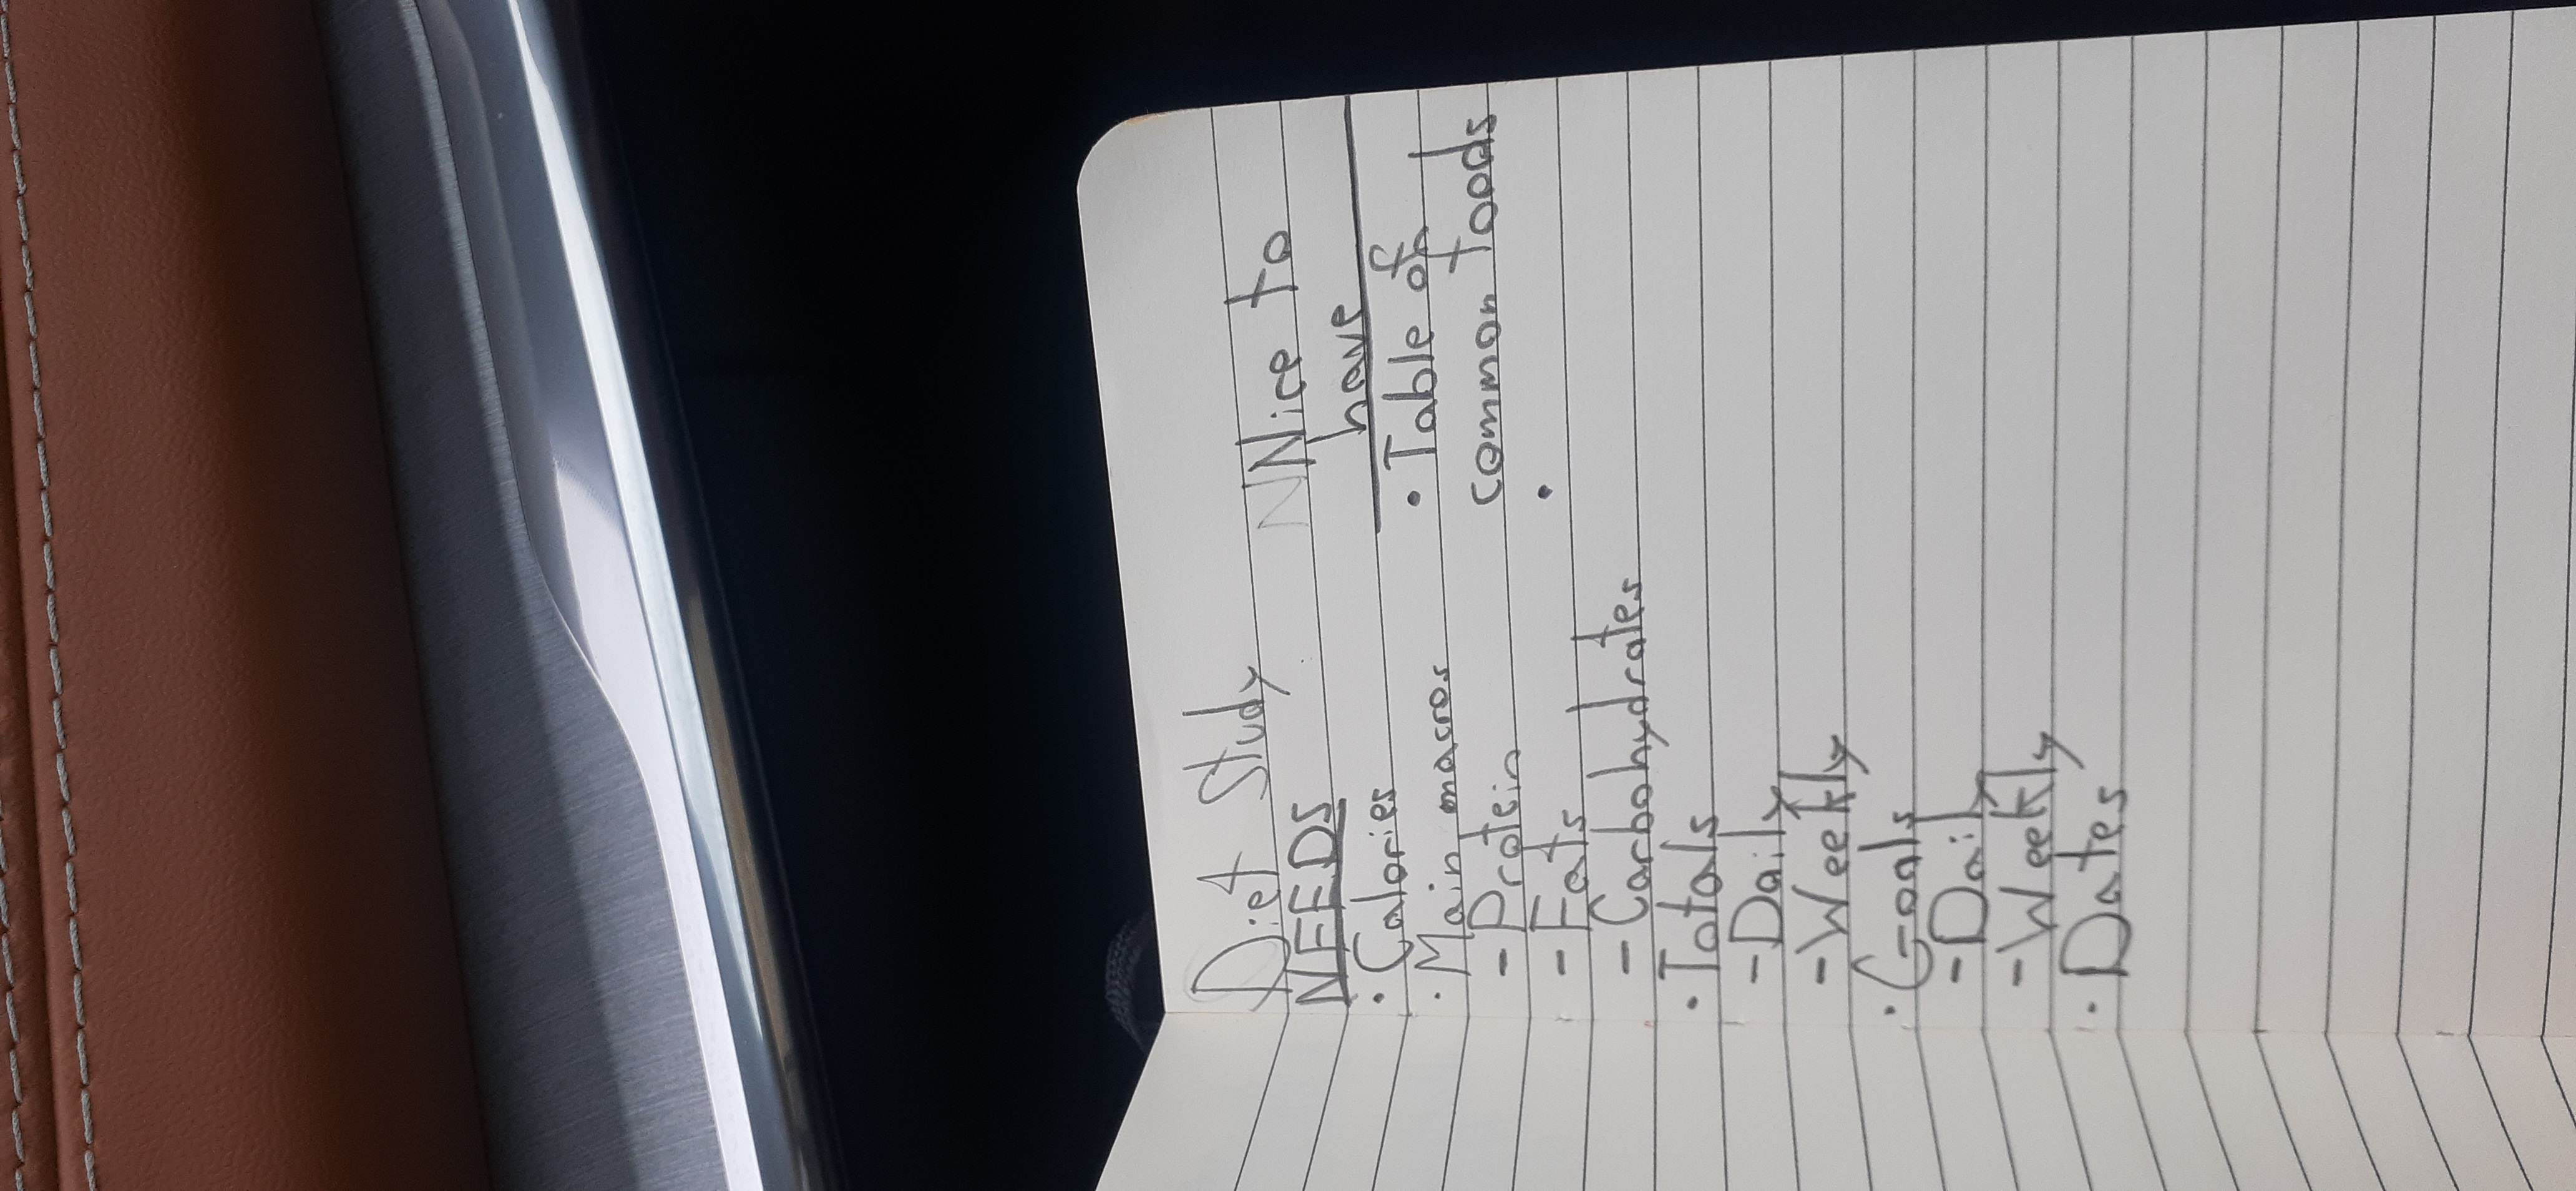 Diet Study
NEEDS
• Calories
• Main macros
- Protein
- Fats
- Carbohydrates
• Totals
- Daily
- Weekly
• Goals
- Daily
- Weekly
• Dates
NNice to
have
• Table of
common foods
•